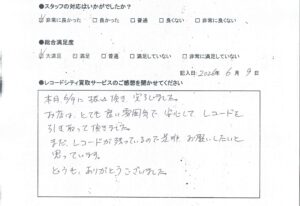 ●スタッフの対応はいかがでしたか?
☑非常に良かった □良かった □普通 □良くない □非常に良くない
●総合満足度
☑大満足 □満足 □普通 □満足していない □非常に満足していない
記入日 2024年 6月 9日
●レコードシティ買取サービスのご感想を聞かせてください
本日 6/9に 振込頂き 完了しました。
お店は、とても良い雰囲気で 安心して レコードを
引き取って頂きました。
まだ、レコードが残っているので是非 お願いしたいと
思っています。
どうも、ありがとうございました。